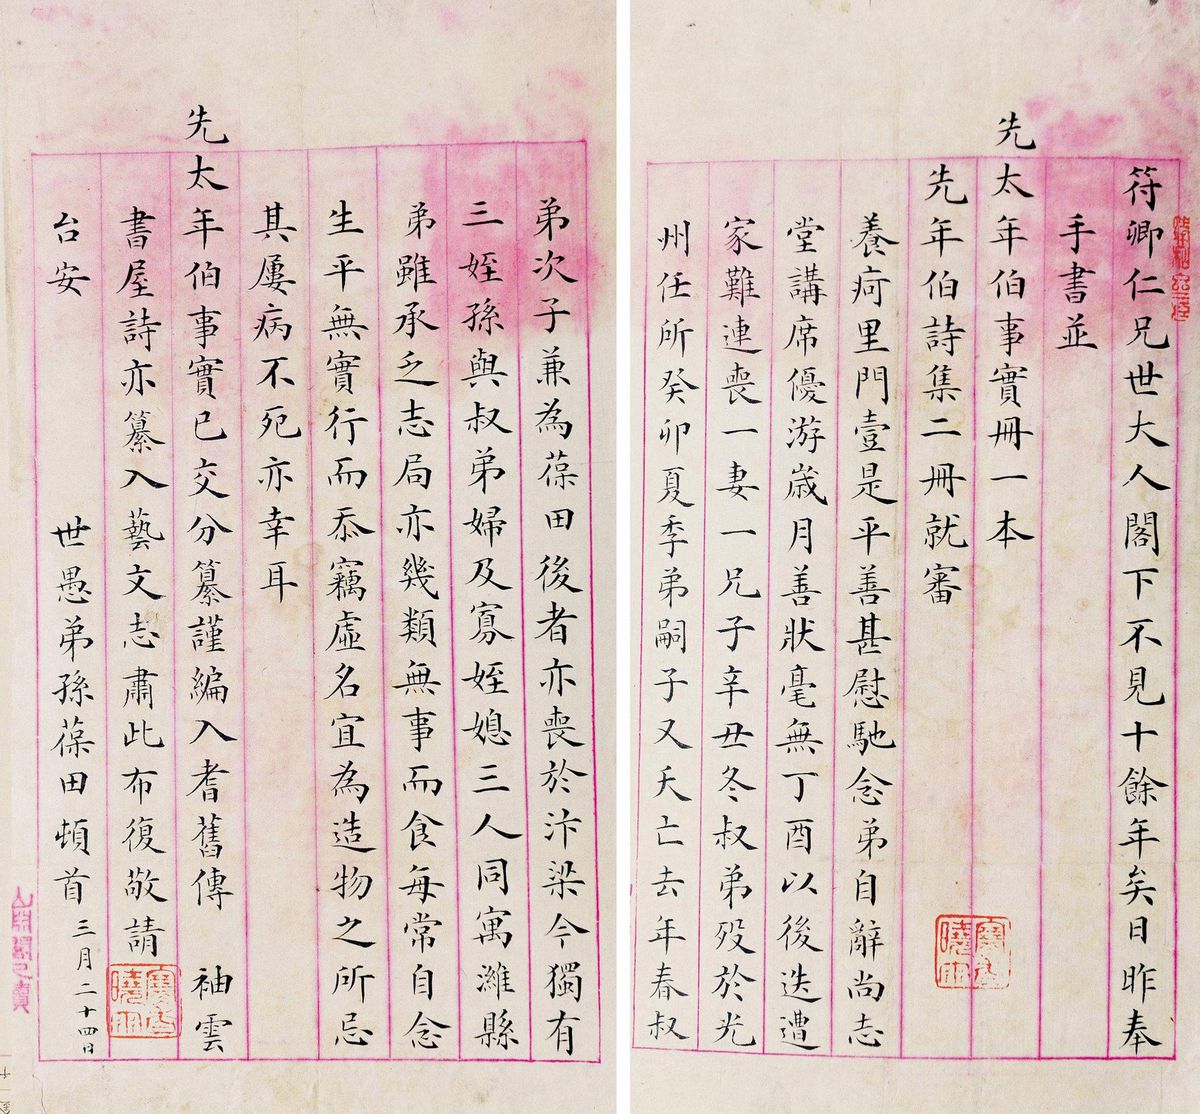 符卿仁兄世大人閣下不見十餘年矣日昨奉
手書並
先太年伯事實冊一本
先年伯詩集二冊就審
養疴里門壹是平善甚慰馳念弟自辭尚志
堂講席優游歲月善狀毫無丁酉以後迭遭
家難連喪一妻一兄子辛丑冬叔弟歿於光
州任所癸卯夏季弟嗣子又夭亡去年春叔
弟次子兼為葆田後者亦喪於汴梁今獨有
三姪孫與叔弟婦及寡姪媳三人同寓濰縣
弟雖承乏志局亦幾類無事而食每常自念
生平無實行而忝竊虛名宜為造物之所忌
其屢病不死亦幸耳
先太年伯事實已交分纂謹編入耆舊傳 袖雲
書屋詩亦纂入藝文志肅此布復敬請
台安
世愚弟孫葆田頓首 三月二十四日